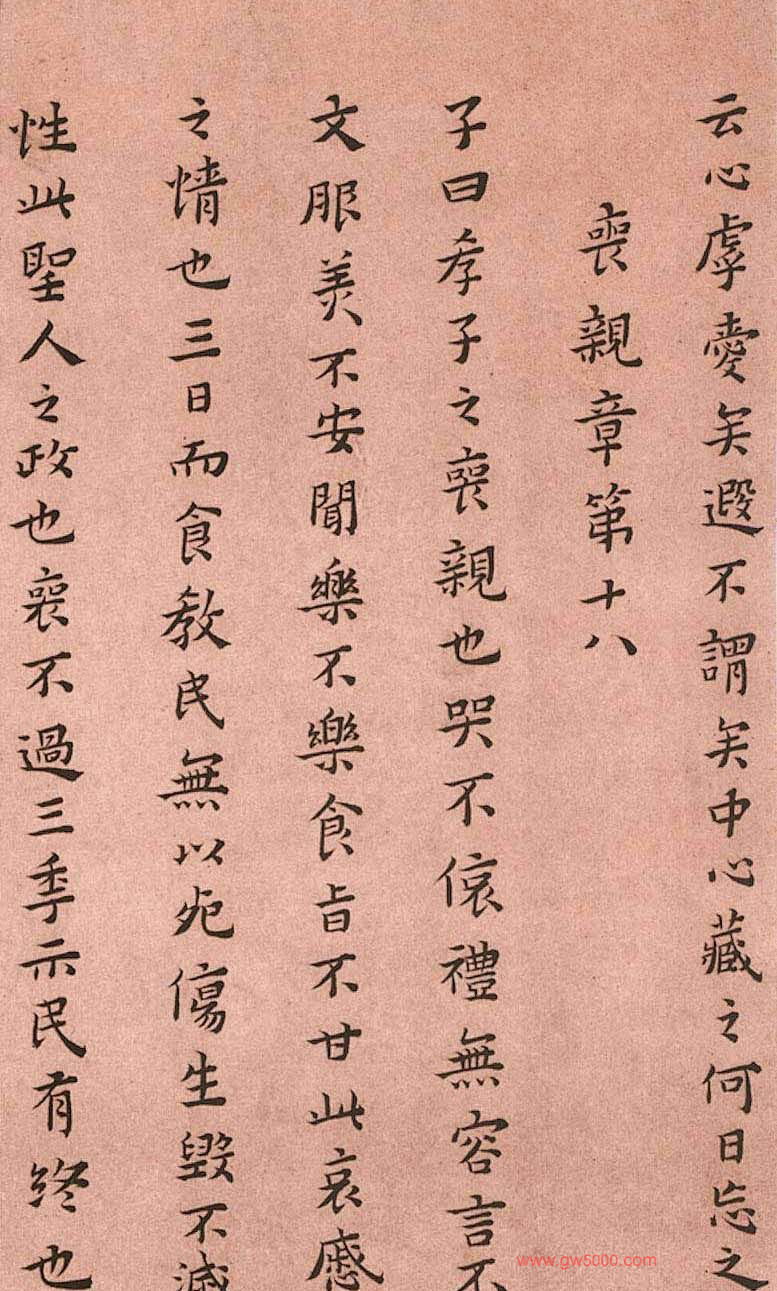 云心虖愛矣遐不謂矣中心藏之何日忘之
喪親章第十八
子曰孝子之喪親也哭不偯禮無容言不
文服美不安聞樂不樂食旨不甘此哀慼
之情也三日而食教民無以死傷生毀不滅
性此聖人之政也喪不過三季示民有終也
www.gw5000.com